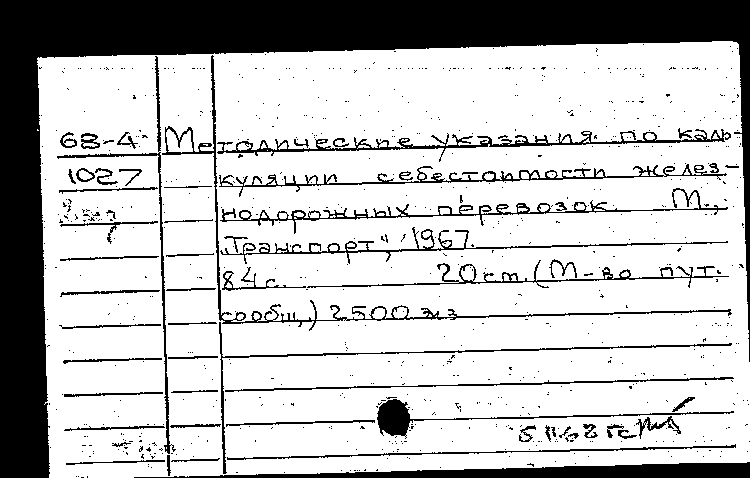 68-4 Методические указания по каль-
1027 куляции себестоимости желез-
нодорожных перевозок М.,
„Транспорт", 1967.
84 с. 20 см. (М-во пут.
сообщ.) 2500 экз